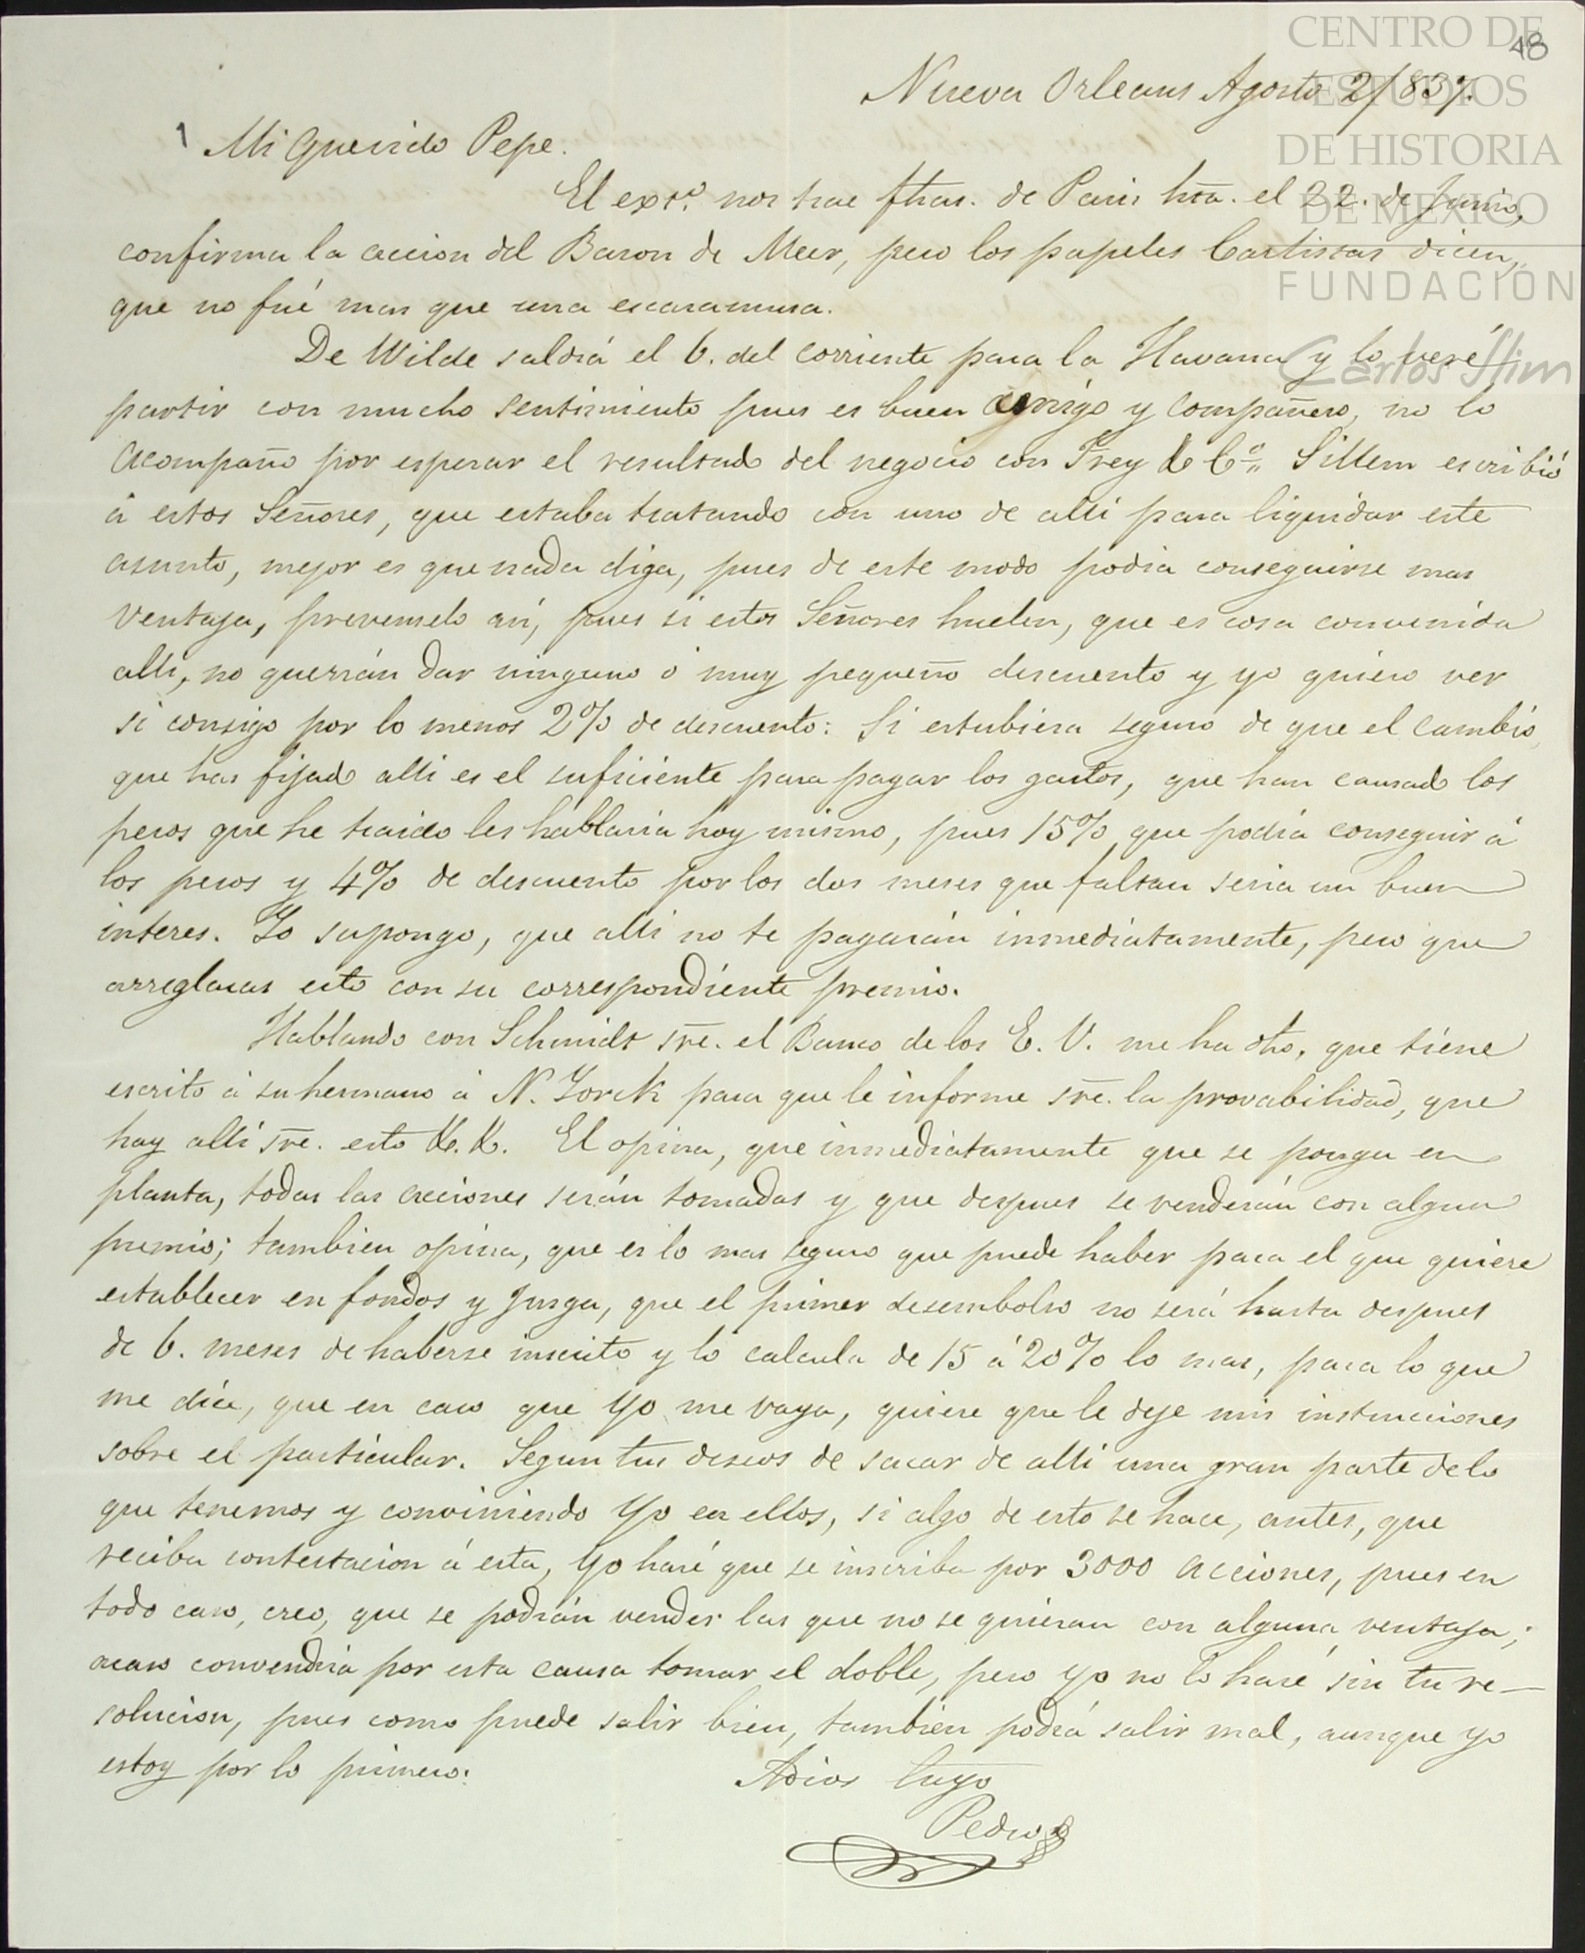 CENTRO DE
ESTUDIOS
DE HISTORIA
DE MEXICO
FUNDACIÓN
Carlos Slim
48
Nueva Orleans Agosto 2/837.
1 Mi querido Pepe.
El extº. nos trae fhas. de Paris hta. el 22. de Junio,
confirma la accion del Baron de Meer, pero los papeles Carlistas dicen,
que no fué mas que una escaramusa.
De Wilde saldrá el 6. del corriente para la Havana y lo veré
partir con mucho sentimiento pues es buen amigo y compañero, no lo
acompaño por esperar el resultado del negocio con Frey & Cº. Sillem escribió
á estos Señores, que estaba tratando con uno de alli para liquidar este
asunto, mejor es que nada diga, pues de este modo podia conseguirse mas
ventaja, prevenselo asi, pues si estos Señores huelen, que es cosa convenida
alli, no querrán dar ninguno ó muy pequeño descuento y yo quiero ver
si consigo por lo menos 2% de descuento: Si estubiera seguro de que el cambio,
que has fijado alli es el suficiente para pagar los gastos, que han causado los
pesos que he traido les hablaria hoy mismo, pues 15% que podia conseguir á
los pesos y 4% de descuento por los dos meses que faltan seria un buen
interes. Yo supongo, que alli no te pagarán inmediatamente, pero que
arreglaras esto con su correspondiente premio.
Hablando con Schmidt sre. el Banco de los E. U. me ha dho, que tiene
escrito á su hermano á N. Yorck para que le informe sre. la provabilidad, que
hay alli sre. esto &. &. El opina, que inmediatamente que se ponga en
planta, todas las acciones serán tomadas y que despues se venderán con algun
premio; tambien opina, que es lo mas seguro que puede haber para el que quiere
establecer en fondos y jusga, que el primer desembolso no será hasta despues
de 6. meses de haberse inscrito y lo calcula de 15 á 20% lo mas, para lo que
me dice, que en caso que yo me vaya, quiere que le deje mis instrucciones
sobre el particular. Segun tus deseos de sacar de alli una gran parte de lo
que tenemos y conviniendo yo en ellos, si algo de esto se hace, antes, que
reciba contestacion á esta, yo haré que se inscriba por 3000 acciones, pues en
todo caso, creo, que se podrán vender las que no se quieran con alguna ventaja;
acaso convendria por esta causa tomar el doble, pero yo no lo haré sin tu re-
solucion, pues como puede salir bien, tambien podrá salir mal, aunque yo
estoy por lo primero. Adios tuyo
Pedro